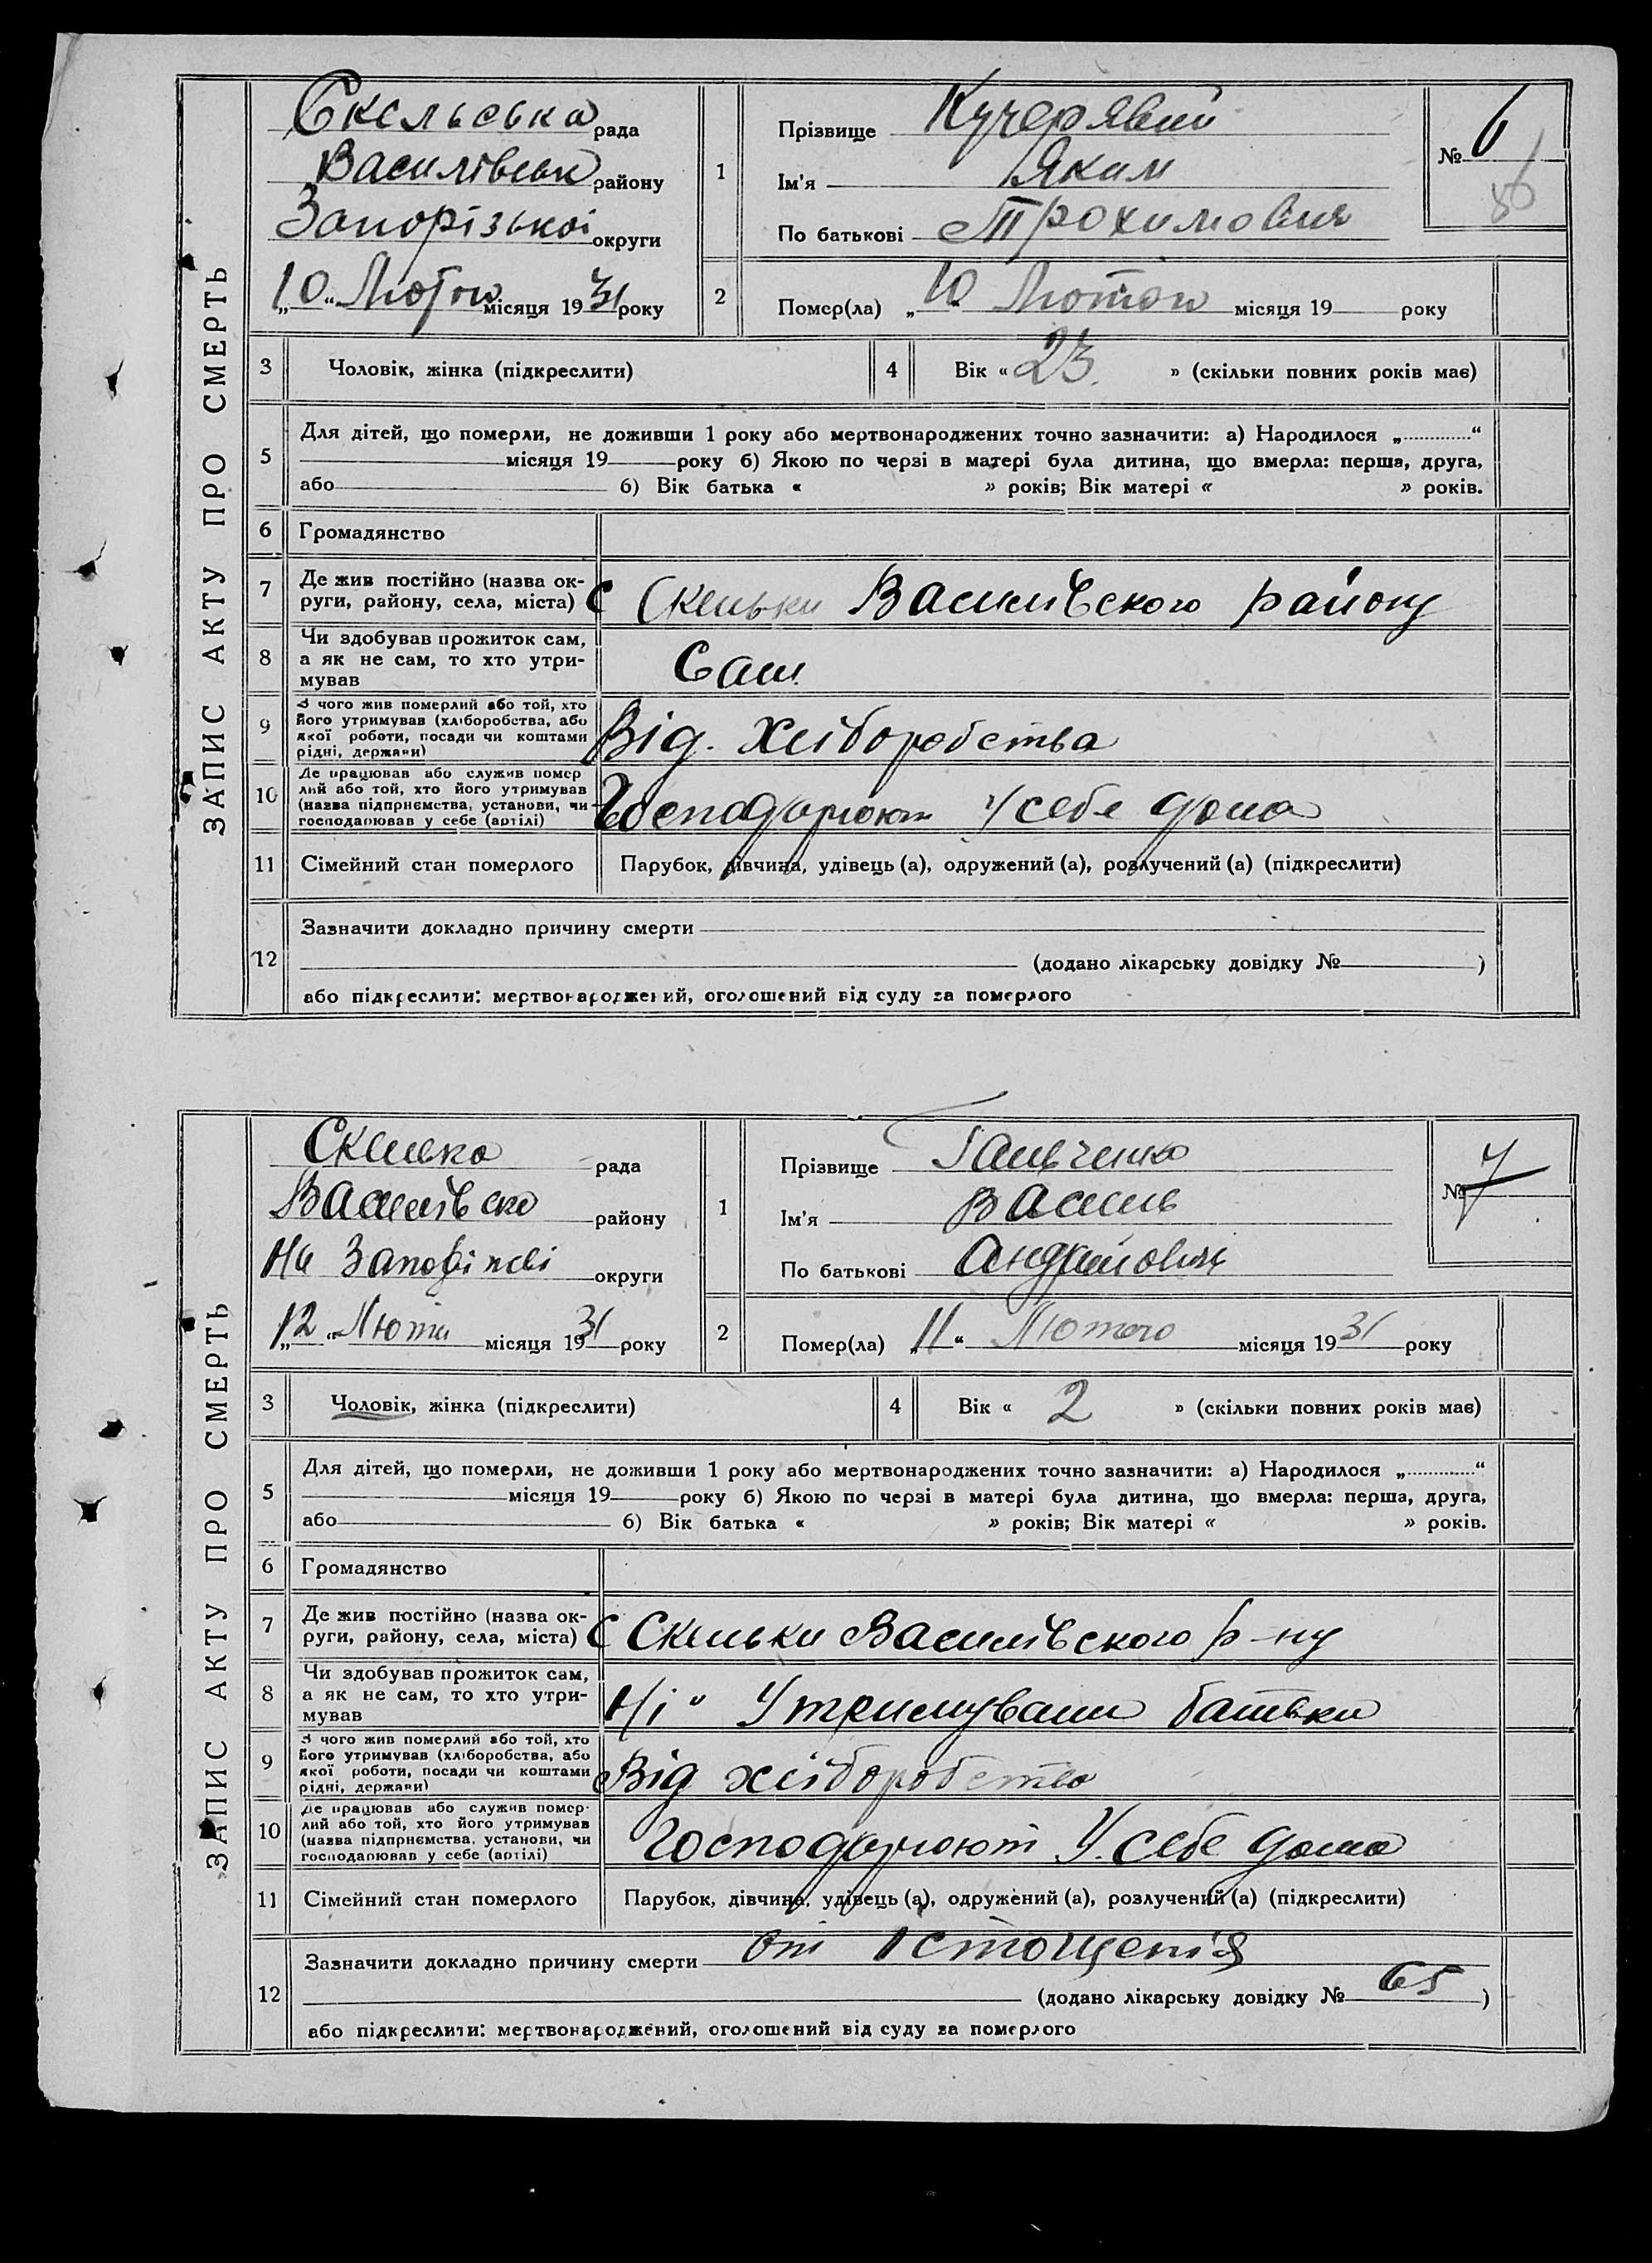 ЗАПИС АКТУ ПРО СМЕРТЬ
Скельська рада
Василівськ району
Запорізької округи
„10“ Лютого місяця 1931 року
1
Прізвище Кучерявий
Ім'я Яким
По батькові Трохимович
№ 6
2
Помер(ла) „10“ Лютого місяця 19 року
3 Чоловік, жінка (підкреслити)
4 Вік « 23 » (скільки повних років має)
5 Для дітей, що померли, не доживши 1 року або мертвонароджених точно зазначити: а) Народилося „ “
місяця 19 року б) Якою по черзі в матері була дитина, що вмерла: перша, друга,
або б) Вік батька « » років; Вік матері « » років.
6 Громадянство
7 Де жив постійно (назва ок-
руги, району, села, міста) С Скельки Василівского району
8 Чи здобував прожиток сам,
а як не сам, то хто утри-
мував Сам
9 З чого жив померлий або той, хто
його утримував (хліборобства, або
якої роботи, посади чи коштами
рідні, держави) Від. Хліборобства
10 Де працював або служив помер
лий або той, хто його утримував
(назва підприємства, установи, чи
господарював у себе (артілі) Господарюют У себе дома
11 Сімейний стан померлого Парубок, дівчина, удівець (а), одружений (а), розлучений (а) (підкреслити)
12 Зазначити докладно причину смерти
(додано лікарську довідку № )
або підкреслити: мертвонароджений, оголошений від суду за померлого
ЗАПИС АКТУ ПРО СМЕРТЬ
рада
району
округи
„12“ місяця 1931 року
1
Прізвище Гальченко
Ім'я Василь
По батькові Андрійович
№ 7
2
Помер(ла) „11“ Лютого місяця 1931 року
3 Чоловік, жінка (підкреслити)
4 Вік « 2 » (скільки повних років має)
5 Для дітей, що померли, не доживши 1 року або мертвонароджених точно зазначити: а) Народилося „ “
місяця 19 року б) Якою по черзі в матері була дитина, що вмерла: перша, друга,
або б) Вік батька « » років; Вік матері « » років.
6 Громадянство
7 Де жив постійно (назва ок-
руги, району, села, міста) С Скельки Василівского р-ну
8 Чи здобував прожиток сам,
а як не сам, то хто утри-
мував Ні Утримували батьки
9 З чого жив померлий або той, хто
його утримував (хліборобства, або
якої роботи, посади чи коштами
рідні, держави) Від хліборобства
10 Де працював або служив помер-
лий або той, хто його утримував
(назва підприємства, установи, чи
господарював у себе (артілі) Господарюют У. себе дома
11 Сімейний стан померлого Парубок, дівчина, удівець (а), одружений (а), розлучений (а) (підкреслити)
12 Зазначити докладно причину смерти От Істощенія
(додано лікарську довідку № 65 )
або підкреслити: мертвонароджений, оголошений від суду за померлого